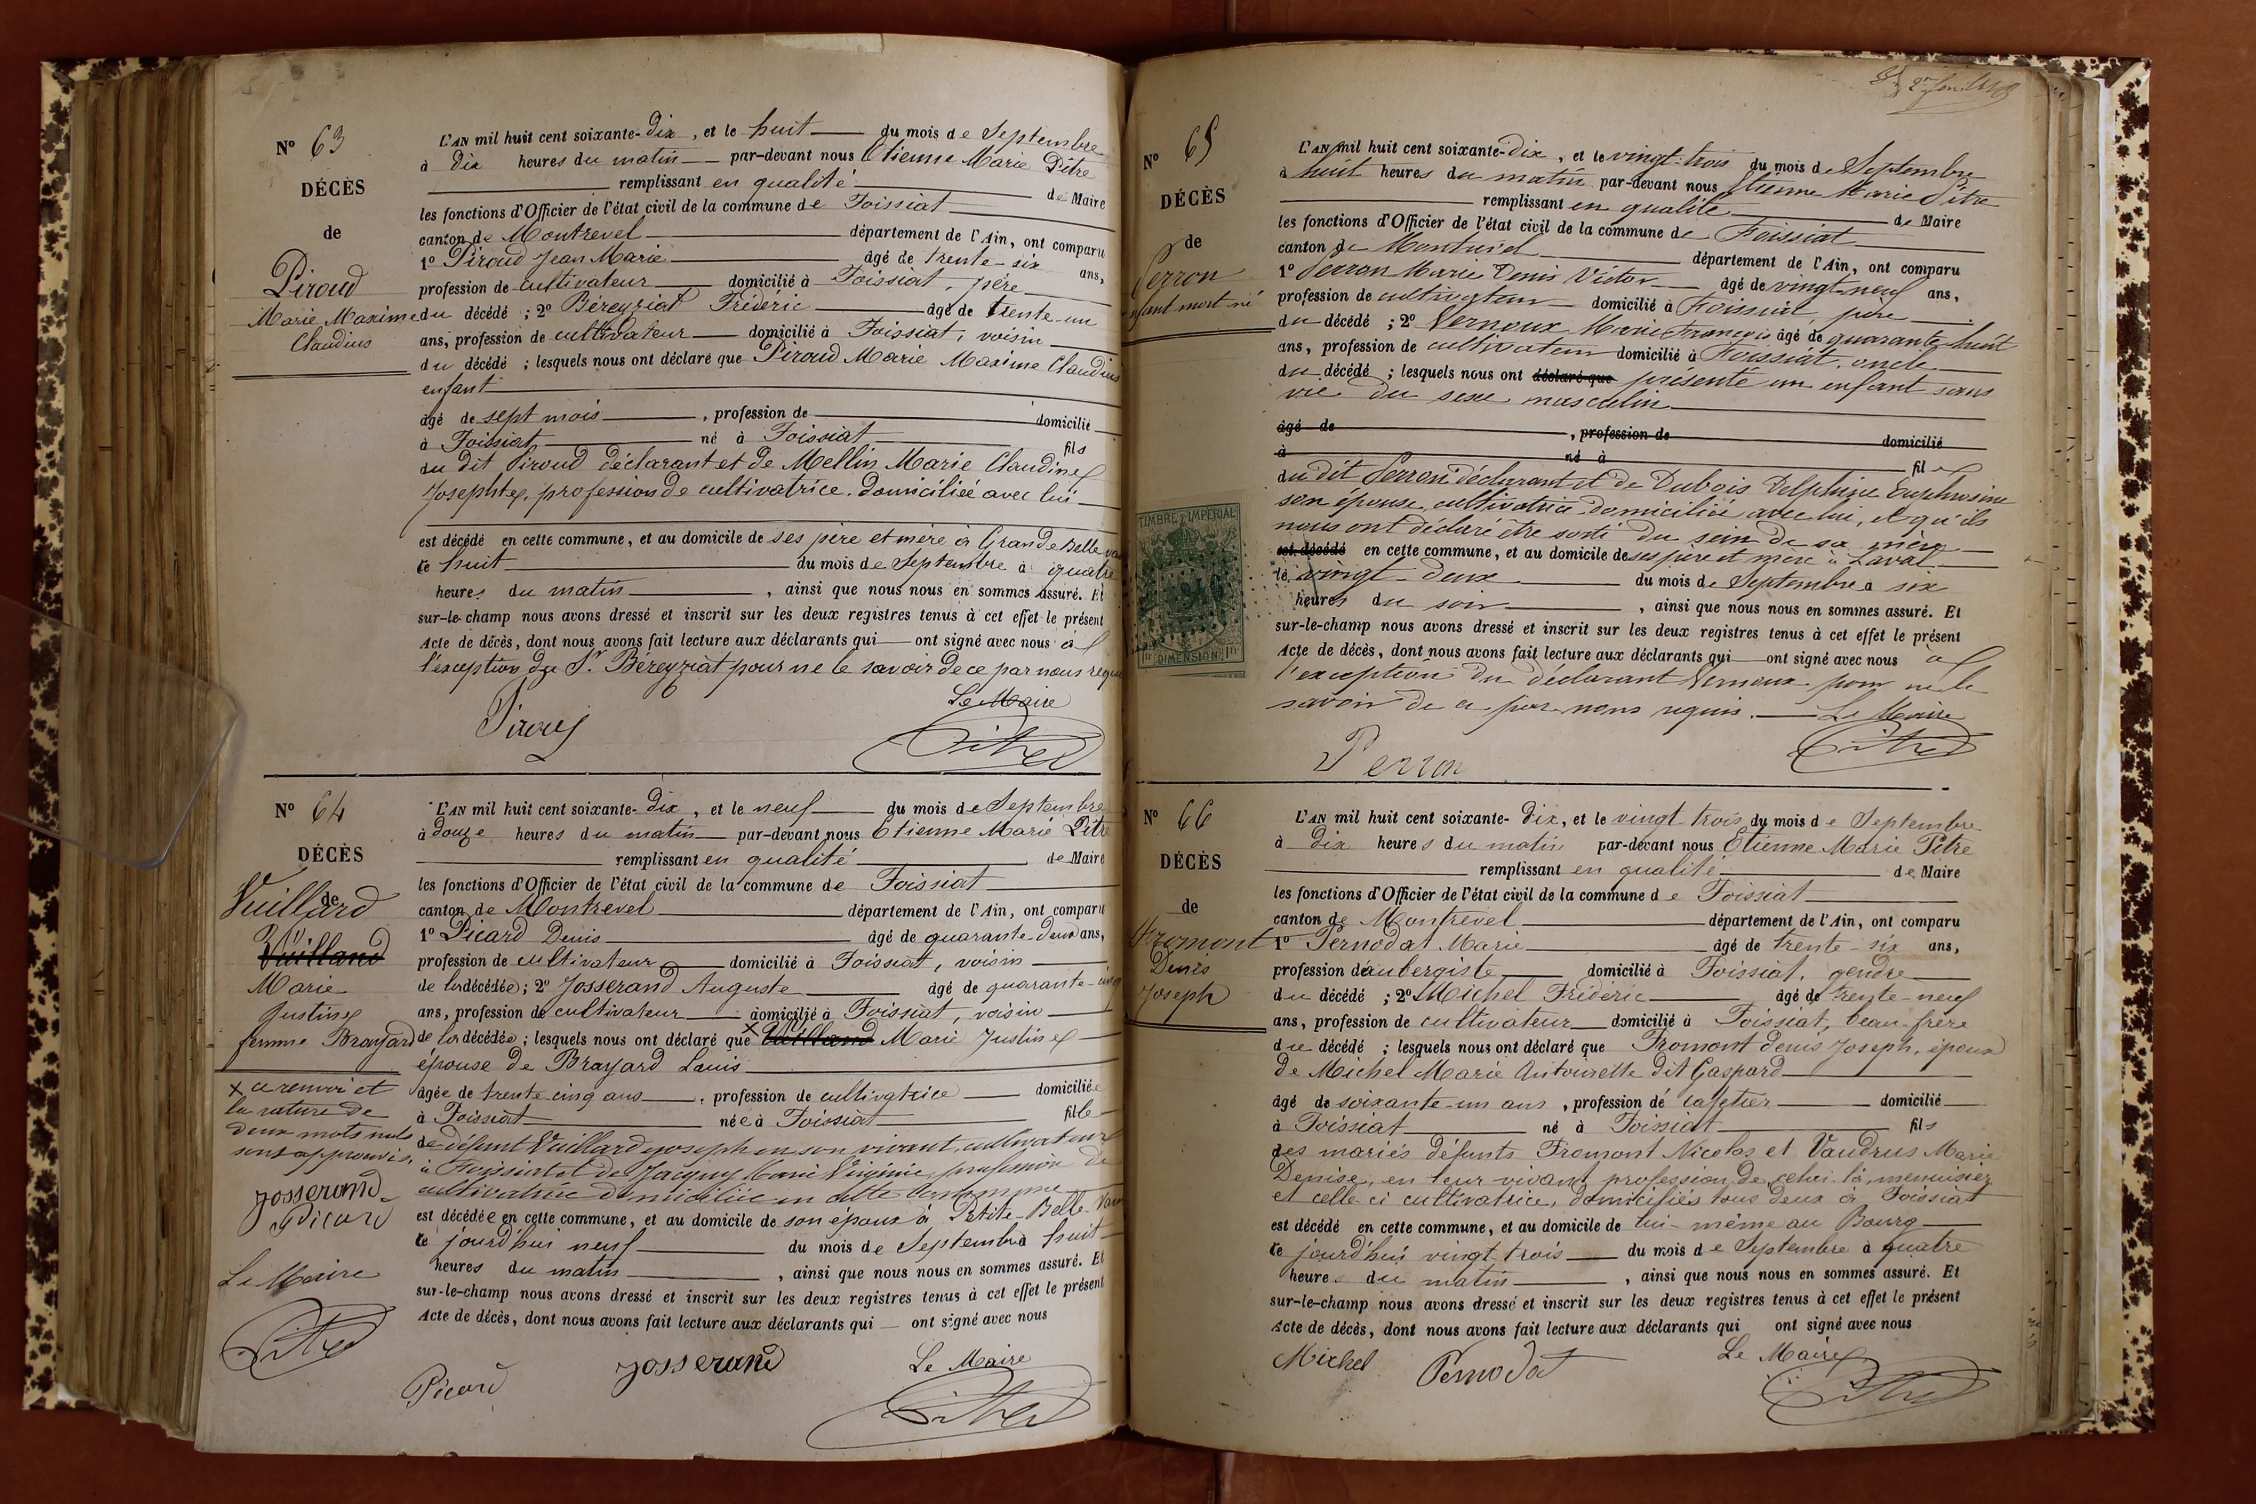 N° 63
DÉCÈS
de
Piroud
Marie Maxime
Claudius
L'AN mil huit cent soixante-dix, et le huit du mois de Septembre
à dix heures du matin par-devant nous Etienne Marie Pitre
remplissant en qualité de Maire
les fonctions d'Officier de l'état civil de la commune de Foissiat
canton de Montrevel département de l'Ain, ont comparu
1° Piroud Jean Marie âgé de trente-six ans,
profession de cultivateur domicilié à Foissiat, père
du décédé ; 2° Béreyziat Frédéric âgé de trente-un
ans, profession de cultivateur domicilié à Foissiat, voisin
du décédé ; lesquels nous ont déclaré que Piroud Marie Maxime Claudius
enfant
âgé de sept mois, profession de domicilié
à Foissiat né à Foissiat fils
du dit Piroud déclarant et de Mellin Marie Claudine
Josephte, profession de cultivatrice domiciliée avec lui
est décédé en cette commune, et au domicile de ses père et mère à Grande Belle
le huit du mois de Septembre à quatre
heures du matin, ainsi que nous nous en sommes assuré. Et
sur-le-champ nous avons dressé et inscrit sur les deux registres tenus à cet effet le présent
Acte de décès, dont nous avons fait lecture aux déclarants qui ont signé avec nous à
l'exception du Sr Béreyziat pour ne le savoir de ce par nous requis
Le Maire
Piroud
Pitre
N° 64
DÉCÈS
de
Vuillard
Vuilland
Marie
Justine
femme Brayard
x ce renvoi et
la rature de
deux mots nuls
sont approuvés.
Josserand
Picard
Le Maire
Pitre
L'AN mil huit cent soixante-dix, et le neuf du mois de Septembre
à douze heures du matin par-devant nous Etienne Marie Pitre
remplissant en qualité de Maire
les fonctions d'Officier de l'état civil de la commune de Foissiat
canton de Montrevel département de l'Ain, ont comparu
1° Picard Denis âgé de quarante-deux ans,
profession de cultivateur domicilié à Foissiat, voisin
de la décédée ; 2° Josserand Auguste âgé de quarante-cinq
ans, profession de cultivateur domicilié à Foissiat, voisin
de la décédée ; lesquels nous ont déclaré que x Vuilland Marie Justine
épouse de Brayard Louis
âgée de trente cinq ans, profession de cultivatrice domiciliée
à Foissiat née à Foissiat fille
de défunt Vuillard Joseph en son vivant, cultivateur
à Foissiat et de Jacquy Marie Virginie, profession de
cultivatrice domiciliée en cette commune
est décédée en cette commune, et au domicile de son époux à Petite-Belle
le jourd'hui neuf du mois de Septembre à huit
heures du matin, ainsi que nous nous en sommes assuré. Et
sur-le-champ nous avons dressé et inscrit sur les deux registres tenus à cet effet le présent
Acte de décès, dont nous avons fait lecture aux déclarants qui ont signé avec nous
Picard Josserand Le Maire
Pitre
N° 65
DÉCÈS
de
Perron
enfant mort-né
TIMBRE IMPÉRIAL
DIMENSION
L'AN mil huit cent soixante-dix, et le vingt-trois du mois de Septembre
à huit heures du matin par-devant nous Etienne Marie Pitre
remplissant en qualité de Maire
les fonctions d'Officier de l'état civil de la commune de Foissiat
canton de Montrevel département de l'Ain, ont comparu
1° Perron Marie Denis Victor âgé de vingt-neuf ans,
profession de cultivateur domicilié à Foissiat père
du décédé ; 2° Vernoux Marie François âgé de quarante-huit
ans, profession de cultivateur domicilié à Foissiat, oncle
du décédé ; lesquels nous ont déclaré que présenté un enfant sans
vie du sexe masculin
âgé de, profession de domicilié
à né à fil
du dit Perron déclarant et de Dubois Delphine Euphrosine
son épouse, cultivatrice domiciliée avec lui, et qu'ils
nous ont déclaré être sorti du sein de sa mère
est décédé en cette commune, et au domicile de ses père et mère à Laval
le vingt-deux du mois de Septembre à six
heures du soir, ainsi que nous nous en sommes assuré. Et
sur-le-champ nous avons dressé et inscrit sur les deux registres tenus à cet effet le présent
Acte de décès, dont nous avons fait lecture aux déclarants qui ont signé avec nous à
l'exception du déclarant Vernoux pour ne le
savoir de ce par nous requis. Le Maire
Perron
Pitre
N° 66
DÉCÈS
de
Fromont
Denis
Joseph
L'AN mil huit cent soixante-dix, et le vingt trois du mois de Septembre
à dix heures du matin par-devant nous Etienne Marie Pitre
remplissant en qualité de Maire
les fonctions d'Officier de l'état civil de la commune de Foissiat
canton de Montrevel département de l'Ain, ont comparu
1° Pernodat Marie âgé de trente-six ans,
profession d'aubergiste domicilié à Foissiat, gendre
du décédé ; 2° Michel Frédéric âgé de trente-neuf
ans, profession de cultivateur domicilié à Foissiat, beau-frère
du décédé ; lesquels nous ont déclaré que Fromont denis Joseph, époux
de Michel Marie Antoinette dit Gaspard
âgé de soixante-un ans, profession de cafetier domicilié
à Foissiat né à Foissiat fils
des mariés défunts Fromont Nicolas et Vaudrus Marie
Denise, en leur vivant profession de celui-là, menuisier
et celle ci cultivatrice, domiciliés tous deux à Foissiat
est décédé en cette commune, et au domicile de lui-même au Bourg
le jourd'hui vingt trois du mois de Septembre à quatre
heures du matin, ainsi que nous nous en sommes assuré. Et
sur-le-champ nous avons dressé et inscrit sur les deux registres tenus à cet effet le présent
Acte de décès, dont nous avons fait lecture aux déclarants qui ont signé avec nous
Michel Pernodat Le Maire
Pitre